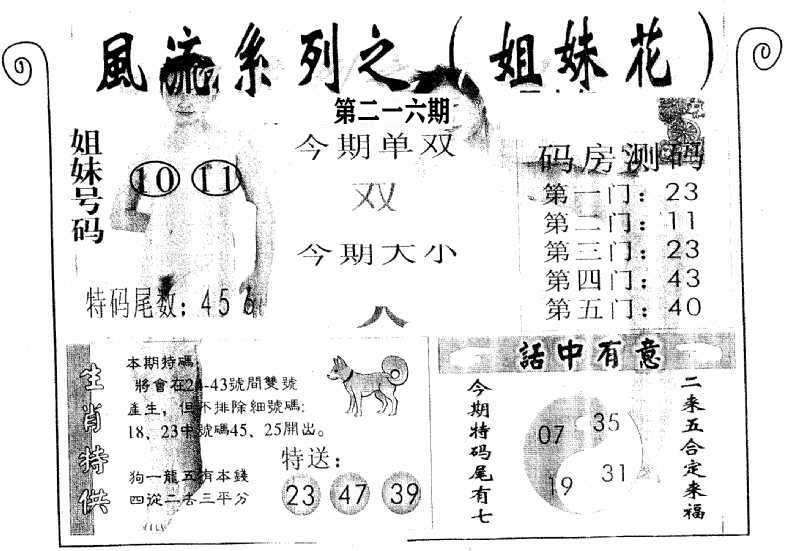 風流系列之（姐妹花）
第二一六期
姐妹号码
10 11
特码尾数：456
今期单双
双
今期大小
大
码房测码
第一门：23
第二门：11
第三门：23
第四门：43
第五门：40
生肖特供
本期特碼
將會在24-43號間雙號
產生，但不排除細號碼:
18、23中號碼45、25開出。
狗一龍五有本錢
四從二去三平分
特送：
23 47 39
話中有意
今期特码尾有七
07 35
19 31
二来五合定来福